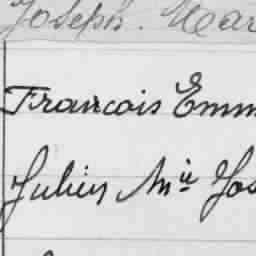 Joseph. Mar
Francois Emm
Julien Mie Jos